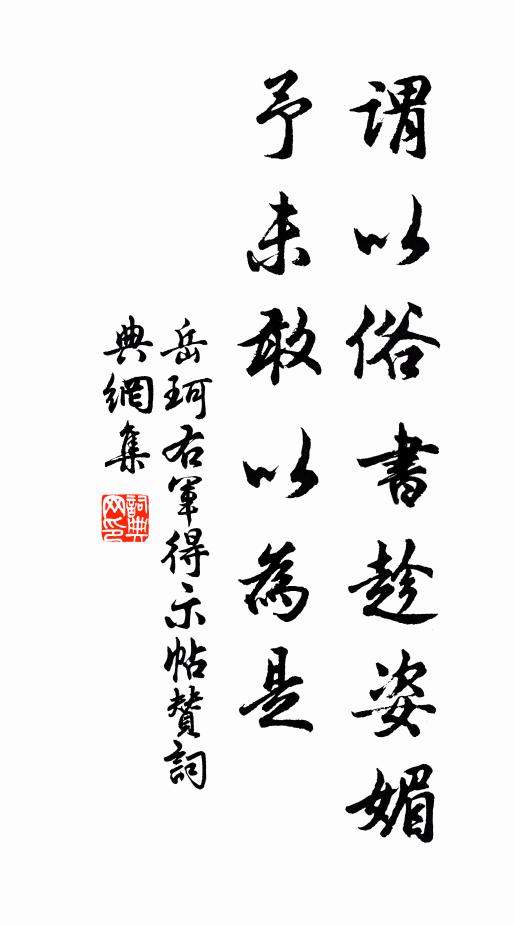 謂以俗書趁姿媚
予未敢以為是
岳珂右軍得示帖賛詞
典網集
詞典
网印